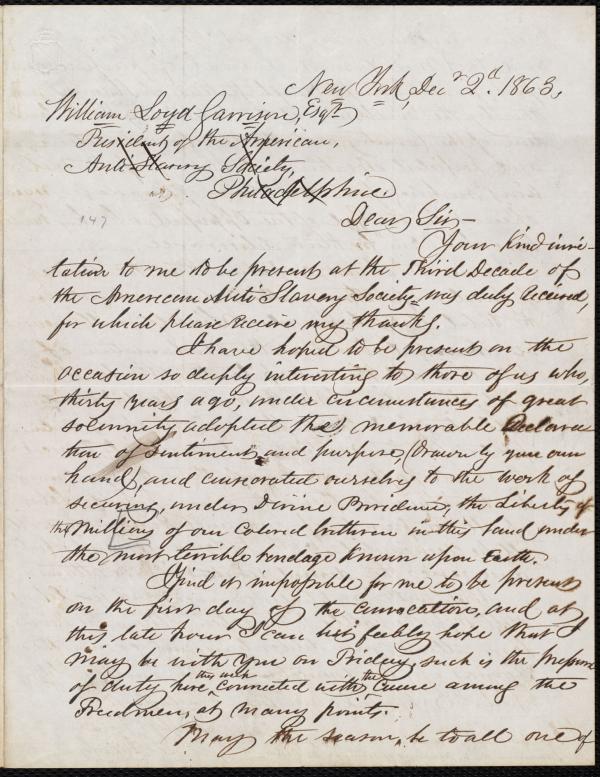 New York, Decr 2d. 1863,
William Loyd Garrison, Esqr
President of the American,
Anti Slavery Society,
Philadelphia
147
Dear Sir—
Your kind invi-
tation to me to be present at the Third Decade of
the American Anti Slavery Society was duly received,
for which please receive my thanks.
I have hoped to be present on the
occasion so deeply interesting to those of us who,
thirty years ago, under circumstances of great
solemnity adopted the memorable Declara
tion of Sentiment and purpose, (drawn by your own
hand) and consecrated ourselves to the work of
securing, under Divine Providence, the Liberty of
the Millions of our colored brethren in this land under
the most terrible bondage known upon Earth.
I find it impossible for me to be present
on the first day of the convocation, and at
this late hour I can but feebly hope that I
may be with you on Friday, such is the pressure
of duty here, this week connected with the cause among the
Freedmen, at many points.
May the season, be to all one of